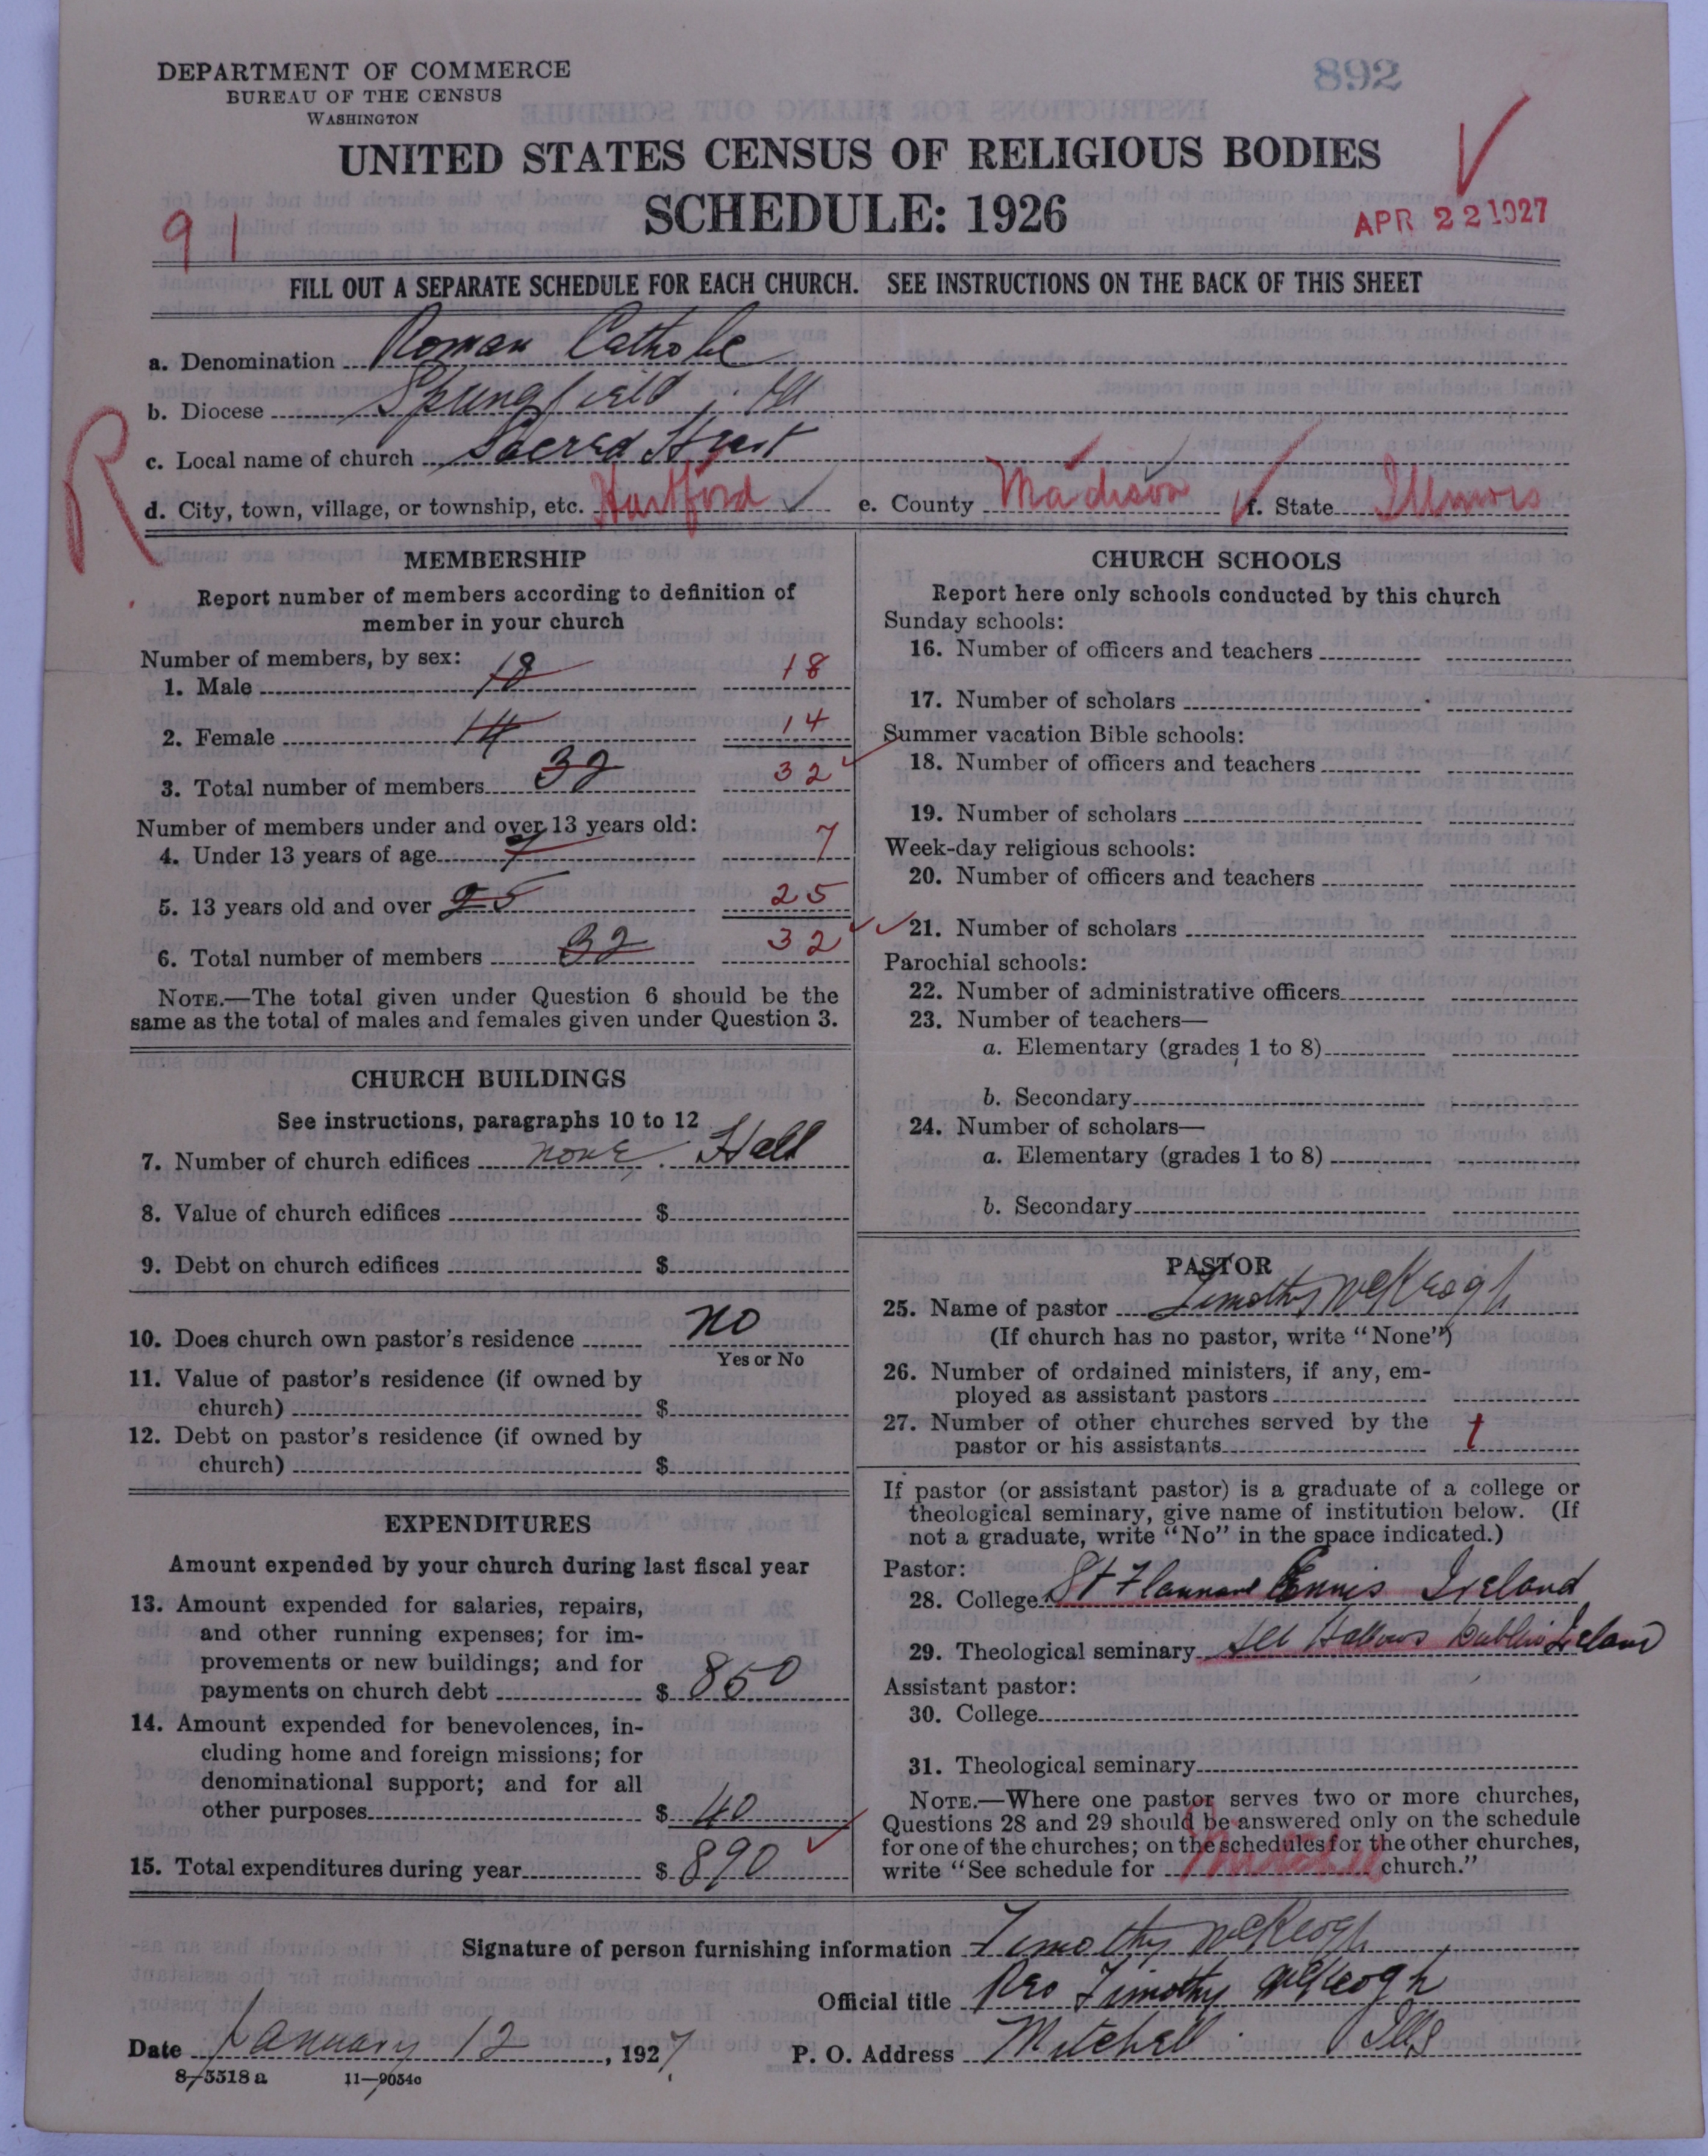 892
DEPARTMENT OF COMMERCE
BUREAU OF THE CENSUS
WASHINGTON
UNITED STATES CENSUS OF RELIGIOUS BODIES
SCHEDULE: 1926
91
APR 22 1927
FILL OUT A SEPARATE SCHEDULE FOR EACH CHURCH. SEE INSTRUCTIONS ON THE BACK OF THIS SHEET
a. Denomination Roman Catholic
b. Diocese Springfield, Ill
c. Local name of church Sacred Heart
R
d. City, town, village, or township, etc. Hartford e. County Madison f. State Illinois
MEMBERSHIP
Report number of members according to definition of
member in your church
Number of members, by sex:
1. Male 18 18
2. Female 14 14
3. Total number of members 32 32
Number of members under and over 13 years old:
4. Under 13 years of age 7 7
5. 13 years old and over 25 25
6. Total number of members 32 32
NOTE.—The total given under Question 6 should be the
same as the total of males and females given under Question 3.
CHURCH BUILDINGS
See instructions, paragraphs 10 to 12
7. Number of church edifices none. Hall
8. Value of church edifices $
9. Debt on church edifices $
10. Does church own pastor's residence no
Yes or No
11. Value of pastor's residence (if owned by
church) $
12. Debt on pastor's residence (if owned by
church) $
EXPENDITURES
Amount expended by your church during last fiscal year
13. Amount expended for salaries, repairs,
and other running expenses; for im-
provements or new buildings; and for
payments on church debt $ 850
14. Amount expended for benevolences, in-
cluding home and foreign missions; for
denominational support; and for all
other purposes $ 40
15. Total expenditures during year $ 890
CHURCH SCHOOLS
Report here only schools conducted by this church
Sunday schools:
16. Number of officers and teachers
17. Number of scholars
Summer vacation Bible schools:
18. Number of officers and teachers
19. Number of scholars
Week-day religious schools:
20. Number of officers and teachers
21. Number of scholars
Parochial schools:
22. Number of administrative officers
23. Number of teachers—
a. Elementary (grades 1 to 8)
b. Secondary
24. Number of scholars—
a. Elementary (grades 1 to 8)
b. Secondary
PASTOR
25. Name of pastor Timothy McKeogh
(If church has no pastor, write "None")
26. Number of ordained ministers, if any, em-
ployed as assistant pastors
27. Number of other churches served by the
pastor or his assistants 1
If pastor (or assistant pastor) is a graduate of a college or
theological seminary, give name of institution below. (If
not a graduate, write "No" in the space indicated.)
Pastor:
28. College St Flannans Ennis Ireland
29. Theological seminary All Hallows Dublin Ireland
Assistant pastor:
30. College
31. Theological seminary
NOTE.—Where one pastor serves two or more churches,
Questions 28 and 29 should be answered only on the schedule
for one of the churches; on the schedules for the other churches,
write "See schedule for Mitchell church."
Signature of person furnishing information Timothy McKeogh
Official title Rev Timothy McKeogh
Date January 12, 1927 P. O. Address Mitchell Ills
8-5518 a 11-9054c